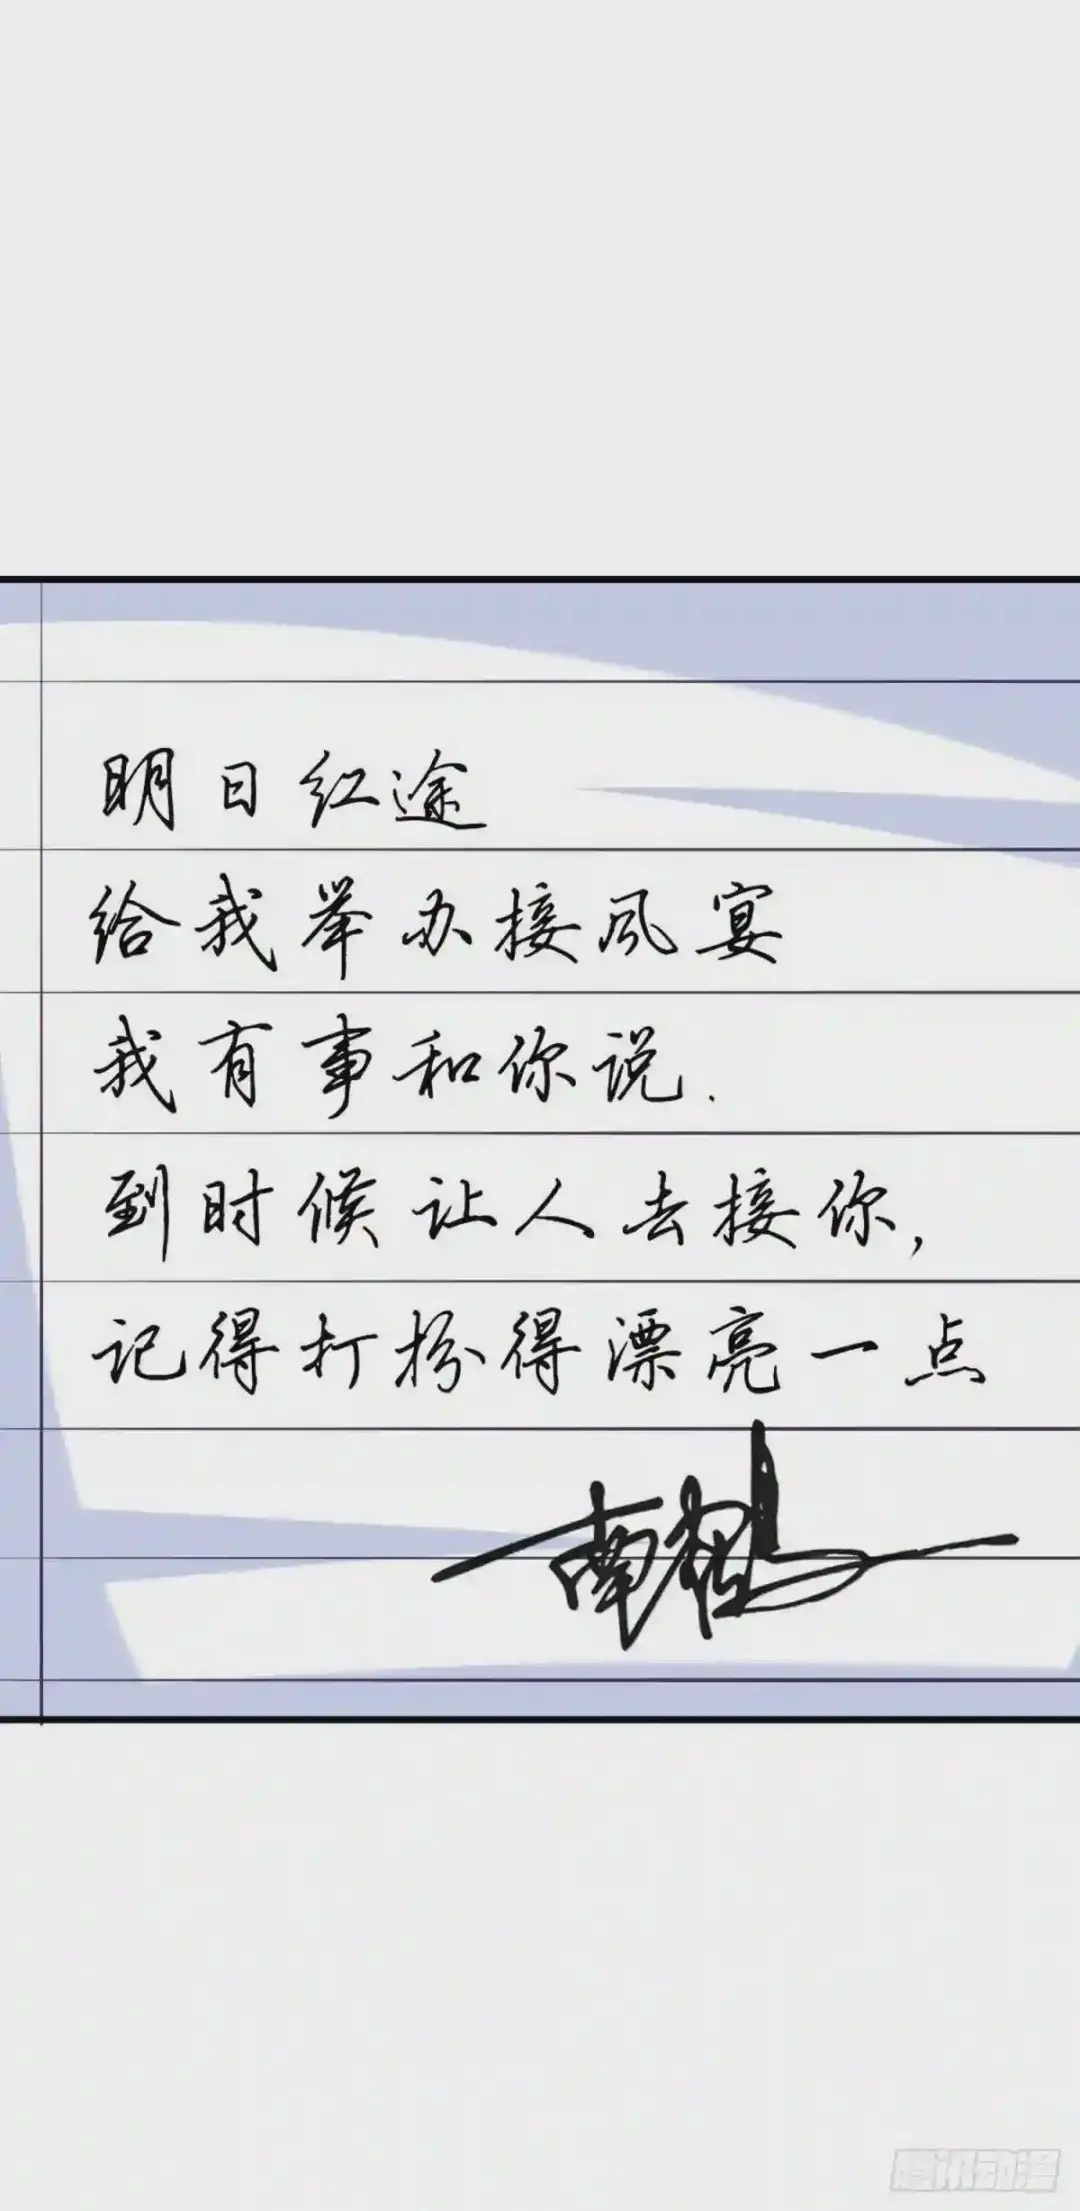 明日红途
给我举办接风宴
我有事和你说.
到时候让人去接你,
记得打扮得漂亮一点
南
腾讯动漫